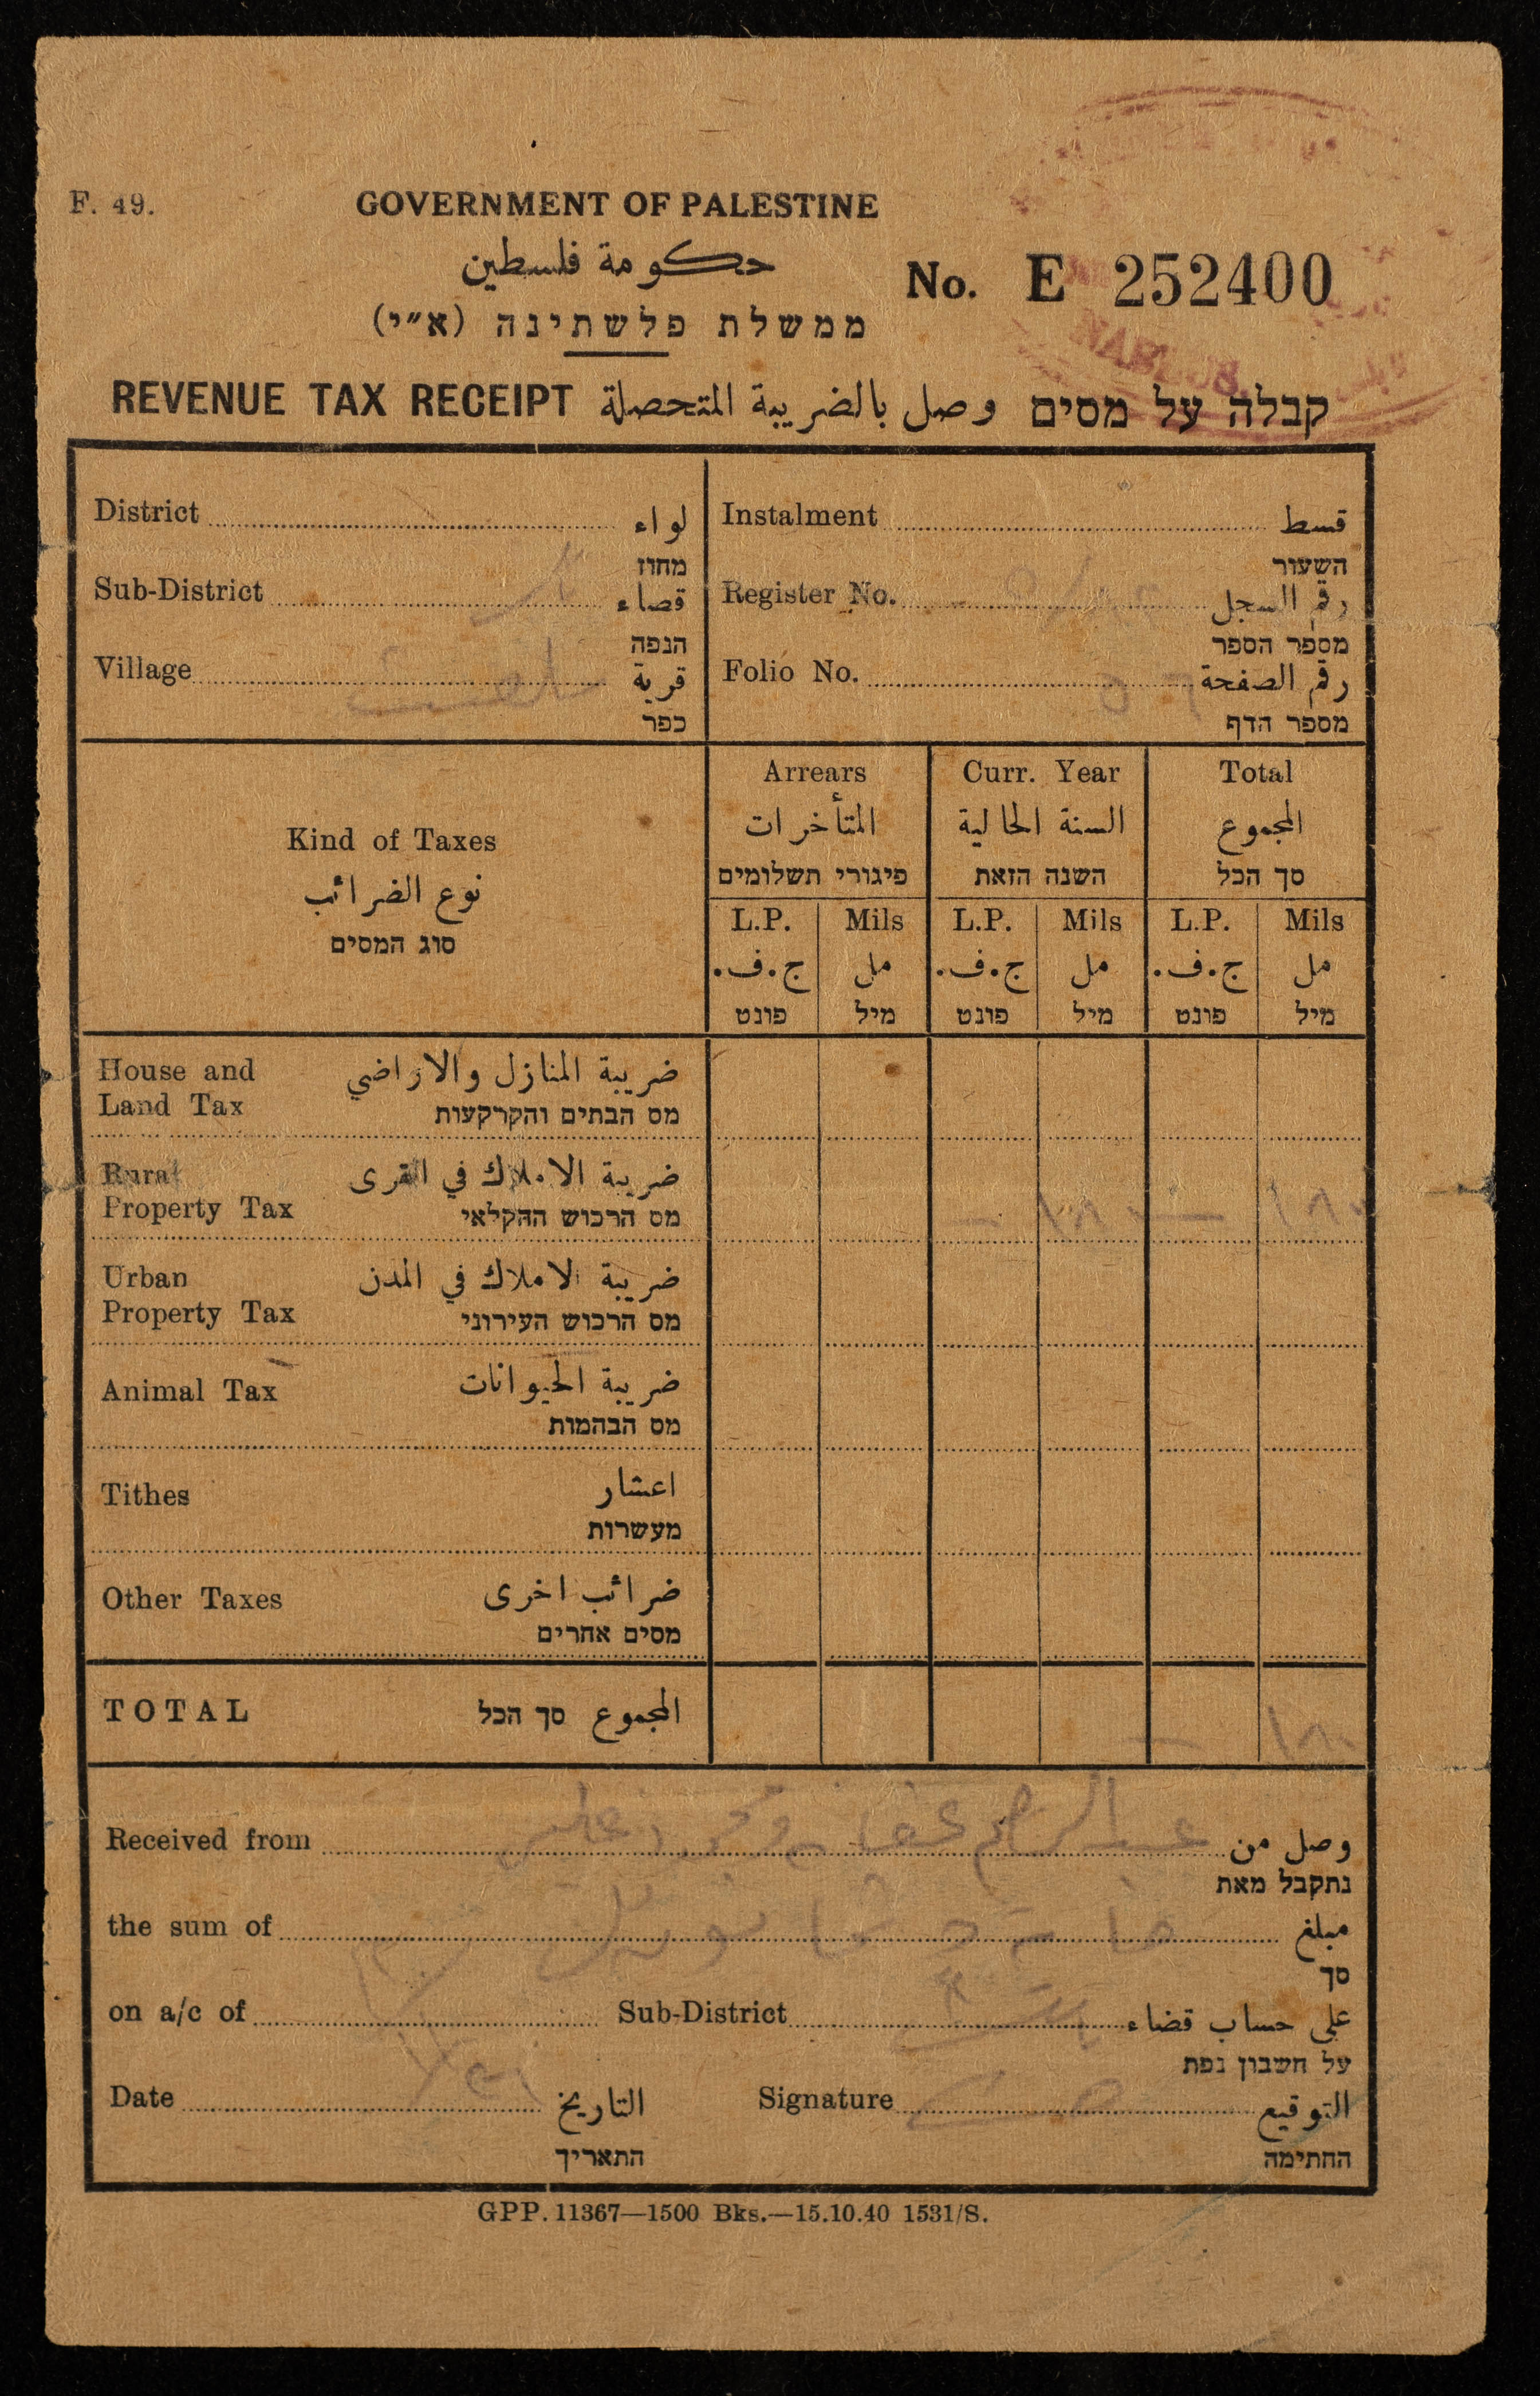 F. 49.
GOVERNMENT OF PALESTINE
حكومة فلسطين
No. E 252400
ממשלת פלשתינה (א״י)
NABLUS
REVENUE TAX RECEIPT وصل بالضريبة المتحصلة קבלה על מסים
District لواء
מחוז
Instalment قسط
השעור
Sub-District قضاء
הנפה
Register No. رقم السجل
מספר הספר
Village قرية
כפר
Folio No. رقم الصفحة
מספר הדף
Kind of Taxes
نوع الضرائب
סוג המסים
Arrears Curr. Year Total
المتأخرات السنة الحالية المجموع
פיגורי תשלומים השנה הזאת סך הכל
L.P. Mils L.P. Mils L.P. Mils
ج.ف. مل ج.ف. مل ج.ف. مل
פונט מיל פונט מיל פונט מיל
House and ضريبة المنازل والاراضي
Land Tax מס הבתים והקרקעות
Rural ضريبة الاملاك في القرى
Property Tax מס הרכוש החקלאי
١٨٠ ١٨٠
Urban ضريبة الاملاك في المدن
Property Tax מס הרכוש העירוני
Animal Tax ضريبة الحيوانات
מס הבהמות
Tithes اعشار
מעשרות
Other Taxes ضرائب اخرى
מסים אחרים
TOTAL المجموع סך הכל ١٨٠
Received from وصل من
נתקבל מאת
the sum of مبلغ
סך
on a/c of Sub-District على حساب قضاء
על חשבון נפת
Date التاريخ Signature التوقيع
התאריך החתימה
GPP. 11367—1500 Bks.—15.10.40 1531/S.